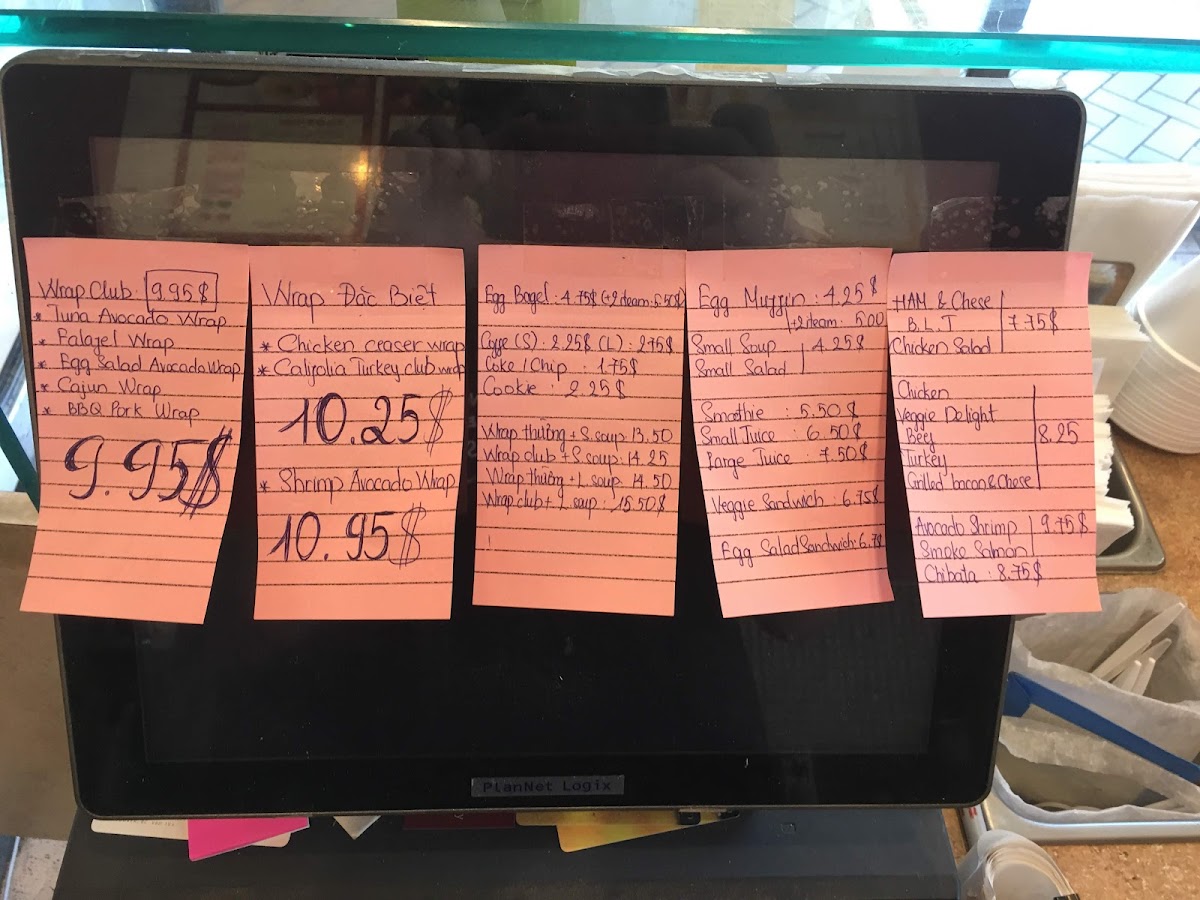 Wrap Club 9.95$
* Tuna Avocado Wrap
* Falafel Wrap
* Egg Salad Avocado Wrap
* Cajun Wrap
* BBQ Pork Wrap
9.95$
Wrap Đặc Biệt
* Chicken ceaser wrap
* Califolia Turkey club wrap
10.25$
* Shrimp Avocado Wrap
10.95$
Egg Bagel : 4.75$ (+2 item : 5.50$)
Coffe (S) : 2.25$ (L) : 2.75$
Coke / Chip : 1.75$
Cookie : 2.25$
Wrap thường + S. soup 13.50
Wrap club + S. soup : 14.25
Wrap thường + L. soup : 14.50
Wrap club + L. soup : 15.50$
Egg Muffin : 4.25$
+2 iteam : 5.00
Small Soup
Small Salad 4.25$
Smothie : 5.50$
Small Juice : 6.50$
Large Juice : 7.50$
Veggie Sandwich : 6.75$
Egg Salad Sandwich : 6.7
HAM & Chese
B.L.T 7.75$
Chicken Salad
Chicken
Veggie Delight
Beef 8.25
Turkey
Grilled bacon & Chese
Avocado Shrimp 9.75$
Smoke Salmon
Chibata : 8.75$
PlanNet Logix